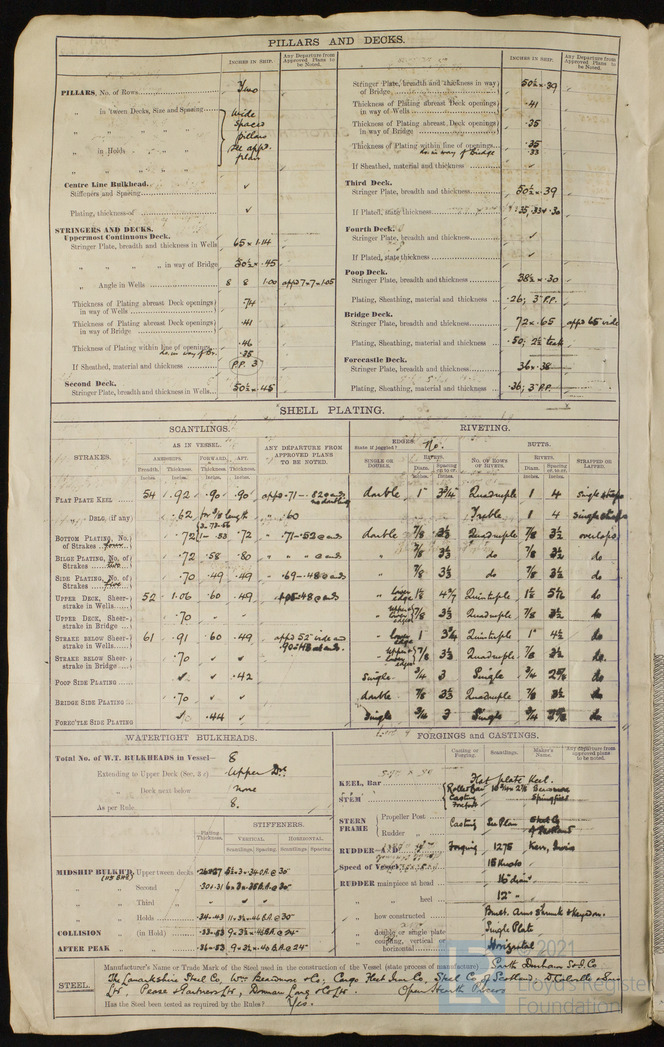 PILLARS AND DECKS.
INCHES IN SHIP.
Any Departure from Approved Plans to be Noted.
PILLARS, No. of Rows Two
„ in 'tween Decks, Size and Spacing wide
„ „ „ spaced
„ „ „ pillars
„ in Holds „ „ see appd
„ „ „ plan
Centre Line Bulkhead.
Stiffeners and Spacing ✓
Plating, thickness of ✓
STRINGERS AND DECKS.
Uppermost Continuous Deck.
Stringer Plate, breadth and thickness in Wells 65 × 1.14
„ „ „ „ in way of Bridge 50½ × .45
„ Angle in Wells 8 8 1.00 appd 7 × 7 × 1.05
Thickness of Plating abreast Deck openings in way of Wells .74
Thickness of Plating abreast Deck openings in way of Bridge .41
Thickness of Plating within line of openings .46
do. in way of Br. .35
If Sheathed, material and thickness P.P. 3
Second Deck.
Stringer Plate, breadth and thickness in Wells 50½ × .45
INCHES IN SHIP.
Any Departure from Approved Plans to be Noted.
Stringer Plate, breadth and thickness in way of Bridge 50½ × .39
Thickness of Plating abreast Deck openings in way of Wells .41
Thickness of Plating abreast Deck openings in way of Bridge .35
Thickness of Plating within line of openings .35
do. in way of Bridge .33
If Sheathed, material and thickness ✓
Third Deck.
Stringer Plate, breadth and thickness 50½ × .39
If Plated, state thickness .35, .33 & .30
Fourth Deck.
Stringer Plate, breadth and thickness ✓
If Plated, state thickness ✓
Poop Deck.
Stringer Plate, breadth and thickness 38½ × .30
Plating, Sheathing, material and thickness .26; 3" P.P.
Bridge Deck.
Stringer Plate, breadth and thickness 72 × .65 appd 65 wide
Plating, Sheathing, material and thickness .50; 2½ teak
Forecastle Deck.
Stringer Plate, breadth and thickness 36 × .38
Plating, Sheathing, material and thickness .36; 3" P.P.
SHELL PLATING.
SCANTLINGS.
RIVETING.
STRAKES.
AS IN VESSEL.
ANY DEPARTURE FROM APPROVED PLANS TO BE NOTED.
EDGES.
State if joggled? No.
BUTTS.
AMIDSHIPS. FORWARD. AFT.
Breadth. Thickness. Thickness. Thickness.
SINGLE OR DOUBLE.
RIVETS.
Diam. Spacing cr. to cr.
No. OF ROWS OF RIVETS.
RIVETS.
Diam. Spacing cr. to cr.
STRAPPED OR LAPPED.
Inches. Inches. Inches. Inches.
FLAT PLATE KEEL 54 .92 .90 .90 double 1" Quadruple 1 4
„ DBLG. (if any) .62 for 3/8 length .60 Treble 1 4
BOTTOM PLATING, No. of Strakes four .72 .53 .72 .71-.52 @ ends double 7/8 Quadruple 7/8 3½ overlaps
BILGE PLATING, No. of Strakes two .72 .58 .80 „ „ @ ends „ 7/8 do 7/8 3½ do
SIDE PLATING, No. of Strakes five .70 .49 .49 .69-.48 @ ends „ 7/8 do 7/8 3½ do
UPPER DECK, Sheer-strake in Wells 52 1.06 .60 .49 lower edge Quintuple do
UPPER DECK, Sheer-strake in Bridge .70 ✓ ✓ 7/8 Quadruple 7/8 3½ do
STRAKE BELOW SHEER-strake in Wells 61 .91 .60 .49 appd 52 wide and lower edge 1 Quintuple 1" do
STRAKE BELOW SHEER-strake in Bridge .70 ✓ ✓ 7/8 Quadruple 7/8 3½ do.
POOP SIDE PLATING ✓ ✓ .42 Single 3/4 3 Single 3/4 do
BRIDGE SIDE PLATING .70 ✓ ✓ double 7/8 Quadruple 7/8 3½ do
FOREC'TLE SIDE PLATING ✓ .44 ✓ Single 3/4 3 Single 3/4 do
WATERTIGHT BULKHEADS.
Total No. of W.T. BULKHEADS in Vessel— 8
Extending to Upper Deck (Sec. 3 c) Upper Dk.
„ Deck next below none
As per Rule 8.
Plating Thickness.
STIFFENERS.
VERTICAL. HORIZONTAL.
Scantlings. Spacing. Scantlings. Spacing.
MIDSHIP BULKH'D, Upper tween decks
„ „ Second „
„ „ Third „ ✓ ✓
„ „ Holds .34-.43
COLLISION „ (in Hold) .33-.53
AFTER PEAK „ „ .36-.53
FORGINGS and CASTINGS.
Casting or Forging. Scantlings. Maker's Name. Any departure from approved plans to be noted.
KEEL, Bar Flat plate Keel.
STEM Rolled Bar Beardmore
Casting Springfield
STERN FRAME Propeller Post Casting See Plan Steel Co
Rudder „ of Scotland
RUDDER Forging 1275 Kerr, Innis
Speed of Vessel 15 Knots
RUDDER mainpiece at head 15" diamr
„ „ heel 12" „
„ how constructed Built. Arms shrunk & keyed on.
„ double or single plate Single Plate
„ coupling, vertical or horizontal Horizontal
STEEL.
Manufacturer's Name or Trade Mark of the Steel used in the construction of the Vessel (state process of manufacture) South Durham S & I. Co
The Lanarkshire Steel Co, Wm Beardmore & Co, Cargo Fleet Iron Co, Steel Co of Scotland, D Colville & Sons
Ltd, Pease & Partners Ltd, Dorman Long & Co Ltd. Open Hearth Process
Has the Steel been tested as required by the Rules? Yes.
© 2021
Lloyd's Register
Foundation
LR